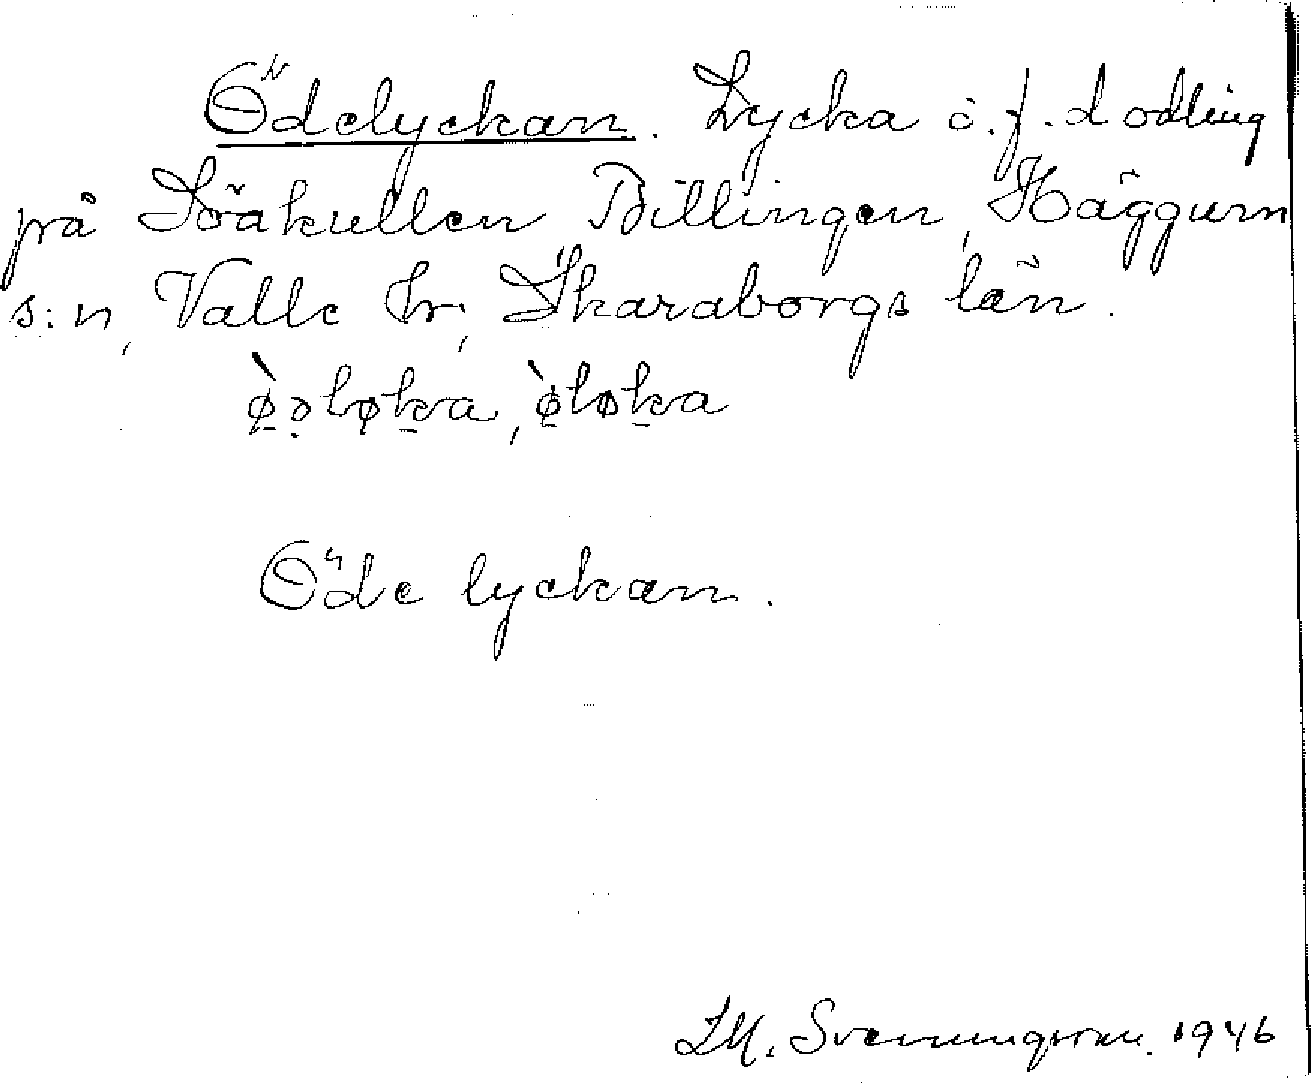 Ödelyckan. Lycka o. f. d odling
på Söäkullen, Billingen, Häggum
s:n, Valle hr, Skaraborgs län.
Öde lyckan.
Svenungsson. 1946